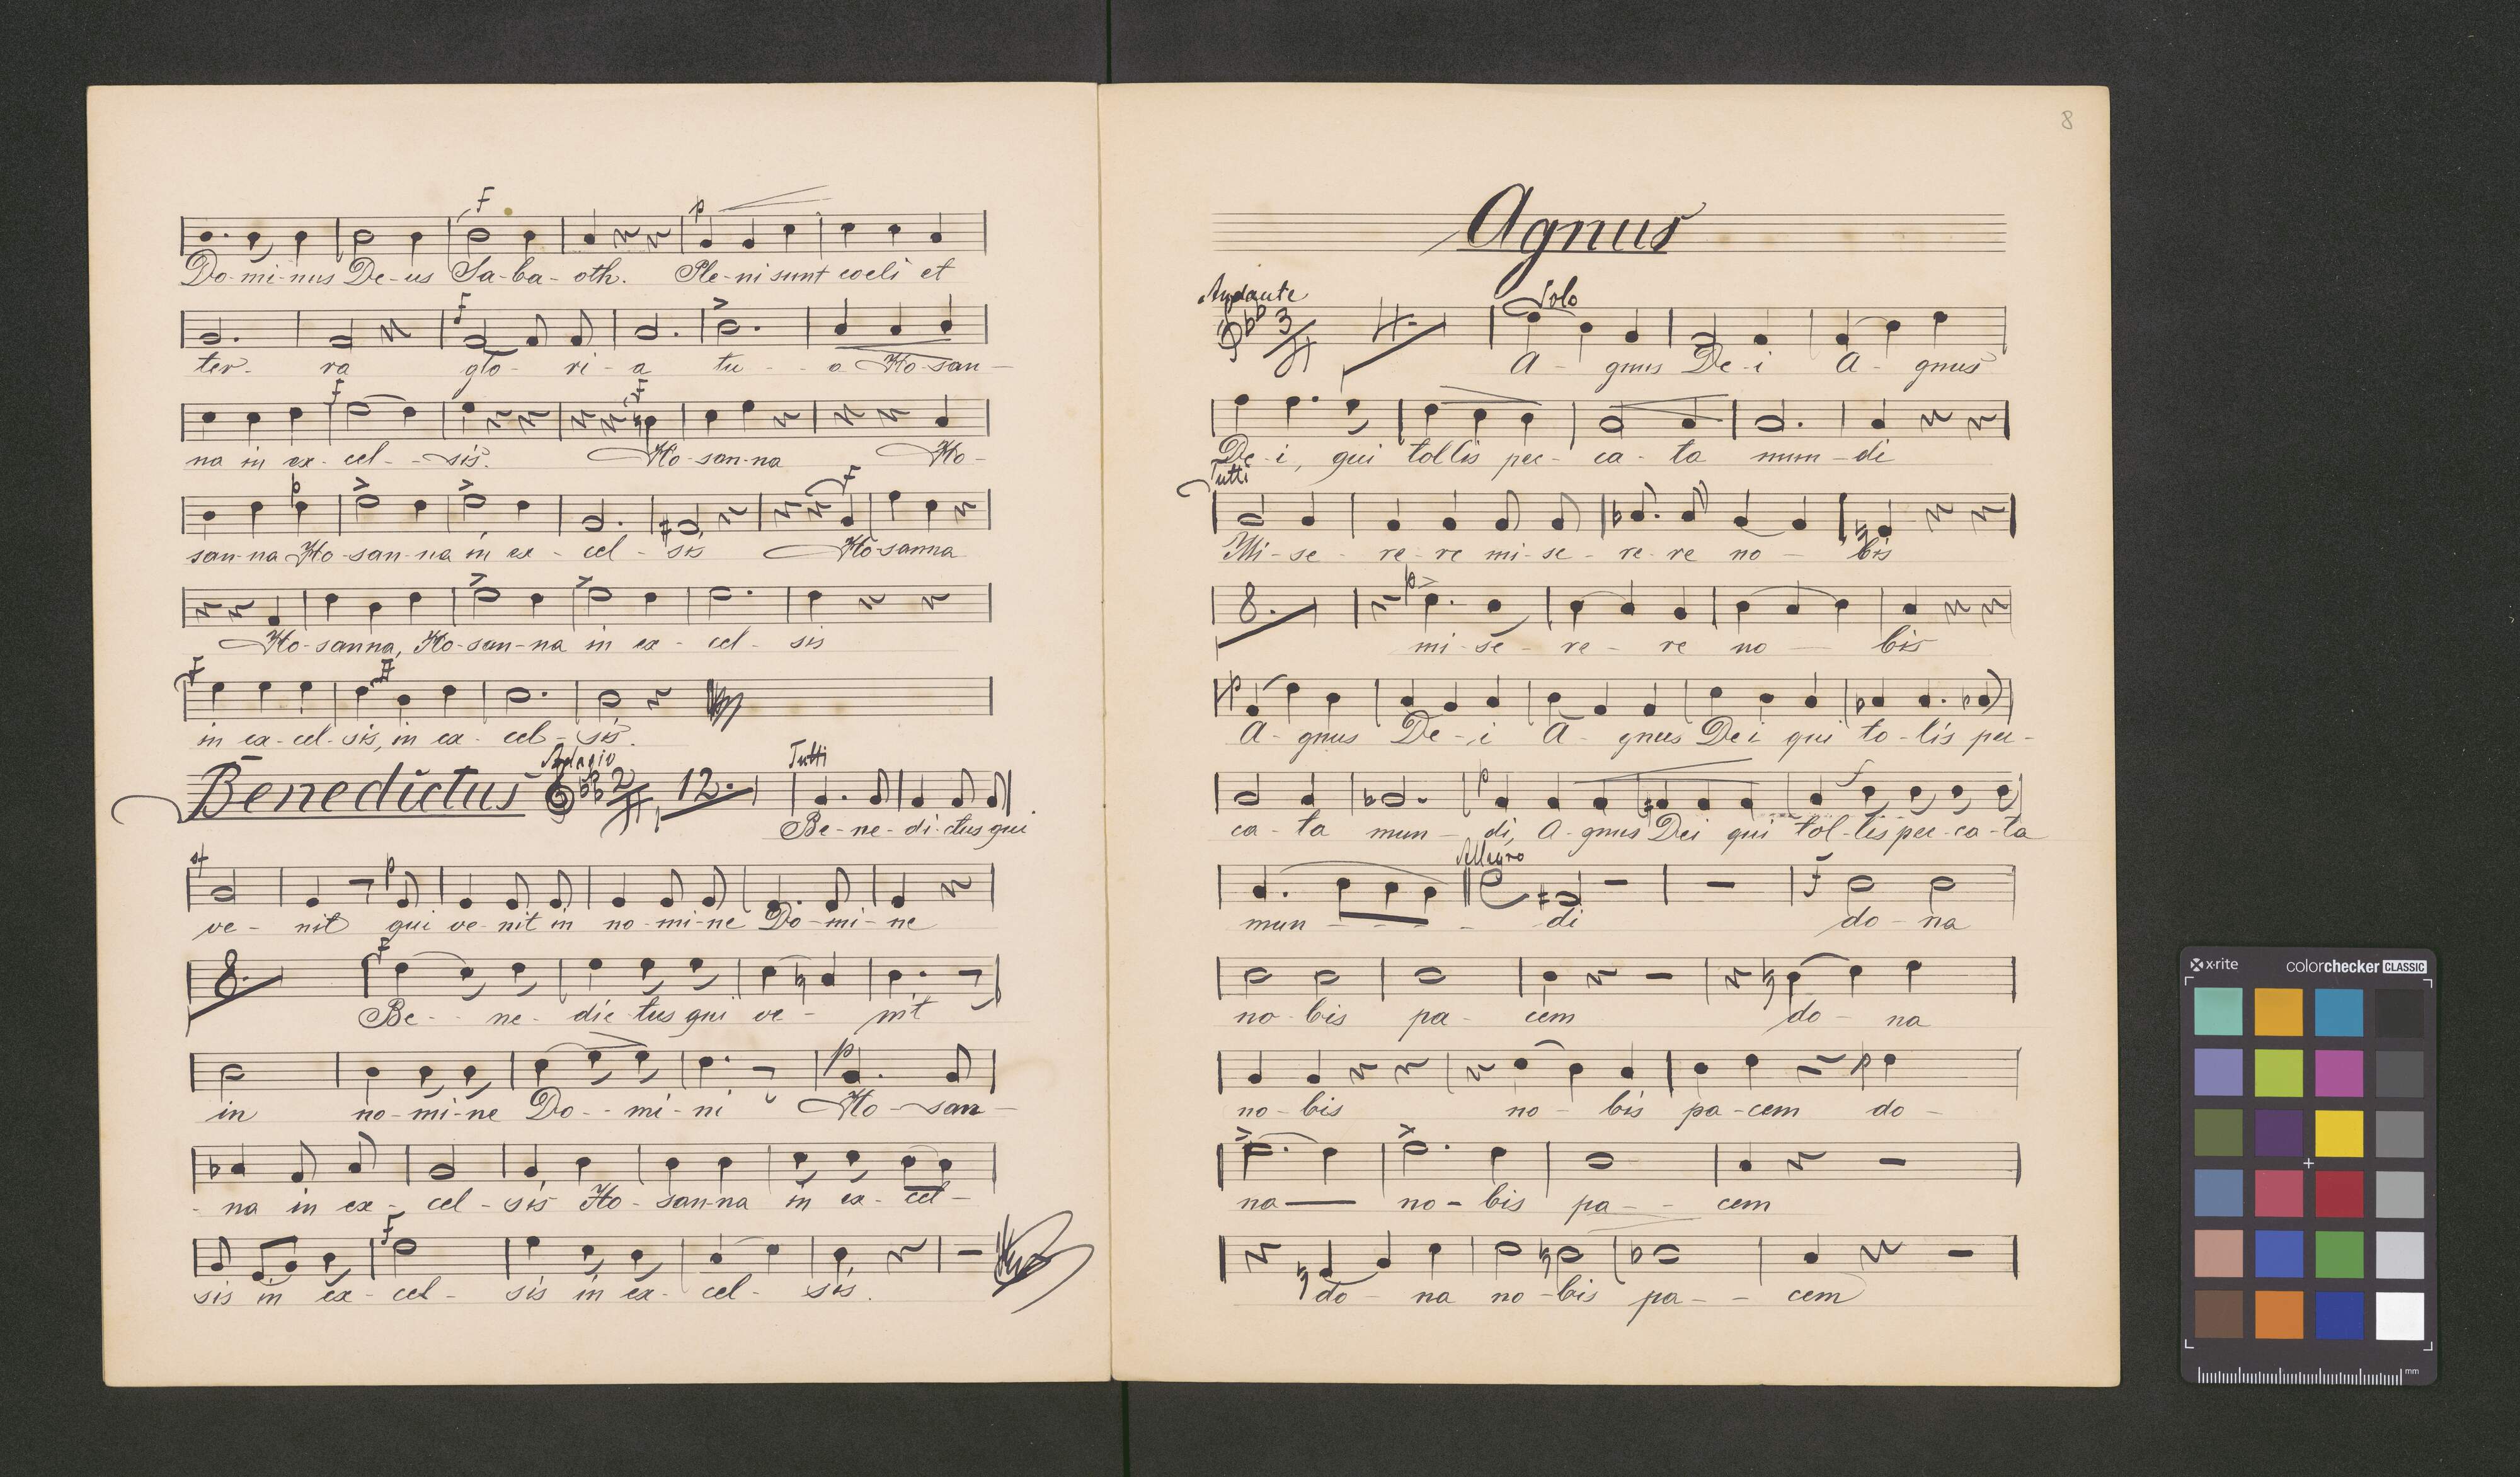 F
p
Do-mi-nus De-us Sa-ba-oth. Ple-ni sunt coeli et
f
ter- ra glo- ri-a tu- - a Ho-san-
f F
na in ex-cel- -sis. Ho-san-na Ho-
p F
san-na Ho-san-na in ex-cel-sis Ho-sanna
Ho-sanna, Ho-san-na in ex-cel-sis
F ff
in ex-cel-sis, in ex-cel-sis.
Benedictus Adagio 2/4 12. Tutti
Be-ne-di-ctus qui
sf p
ve- nit qui ve-nit in no-mi-ne Do-mi-ne
8. F
Be- - ne- dic-tus qui ve- nit
p
in no-mi-ne Do- - mi-ni Ho-san-
- na in ex- cel-sis Ho-san-na in ex-cel-
F
sis in ex-cel- sis in ex-cel- sis.
8
Agnus
Andante 3/4 4. Solo
A- gnus De-i A- gnus
De-i, qui tollis pec- ca-ta mun-di
Tutti
Mi-se- re-re mi-se-re-re no- bis
8. p
mi-se- re- re no- bis
p
A- gnus De-i A- gnus Dei qui to-lis pec-
p f
ca-ta mun- di, A-gnus Dei qui tol-lis pec-ca-ta
Allegro
C f
mun - - - - di do-na
no-bis pa- cem do- na
p
no-bis no- bis pa-cem do-
na no-bis pa- - cem
do- na no-bis pa- - cem
x-rite colorchecker CLASSIC
mm